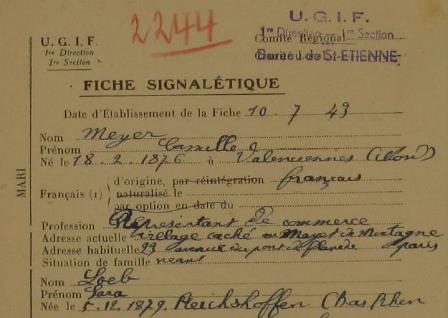 2244
U. G. I. F.
1re Direction
1re Section
U. G. I. F.
1re Direction - 1re Section
Comité Régional
Bureau de St-ETIENNE
FICHE SIGNALÉTIQUE
Date d'Établissement de la Fiche 10. 7. 43
MARI
Nom Meyer
Prénom Camille
Né le 18. 2. 1876 à Valenciennes (Nord)
Français (1) d'origine, par réintégration français
naturalisé le
par option en date du
Profession Représentant de commerce
Adresse actuelle village caché
Adresse habituelle avenue du pont de Paris
Situation de famille
Nom Loeb
Prénom Sara
Née le 5. 12. 1879. Reichshoffen (Bas Rhin